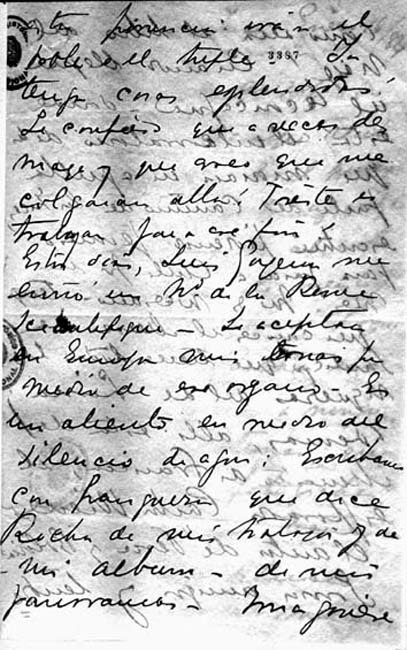 esta provincia irán al
doble o al triple. 3387 Yo
tengo cosas espléndidas!
Le confieso que a veces des
mayo y que creo que me
colgarían allá! Triste es
trabajar para ese fin!
Estos días, Luis me
envió un Nº de la Revue
Scientifique - Se aceptan
en Europa mis por
medio de ese organo - Es
un aliento en medio del
silencio de aqui; Escríbame
con franqueza que dice
Rocha de mis trabajos y de
mi album - de mis
panoramicas - Imaginese